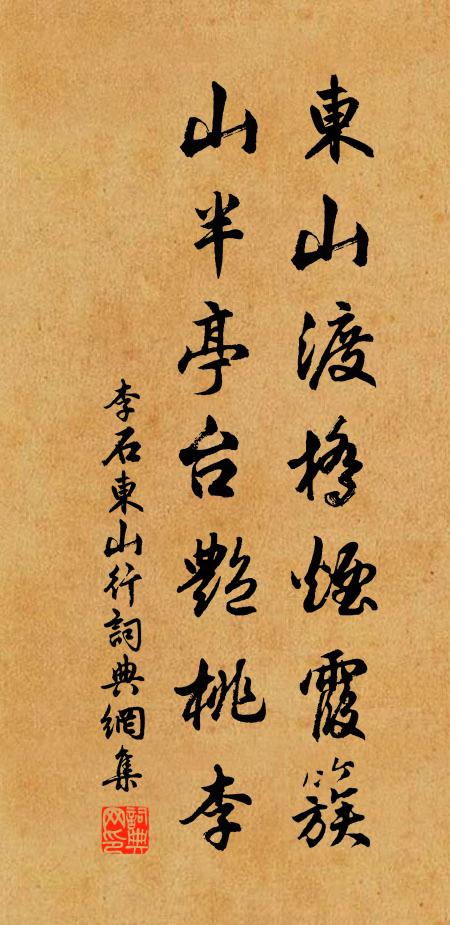 東山渡橋煙霞簇
山半亭台艷桃李
李石東山行詞典網集
詞典網印